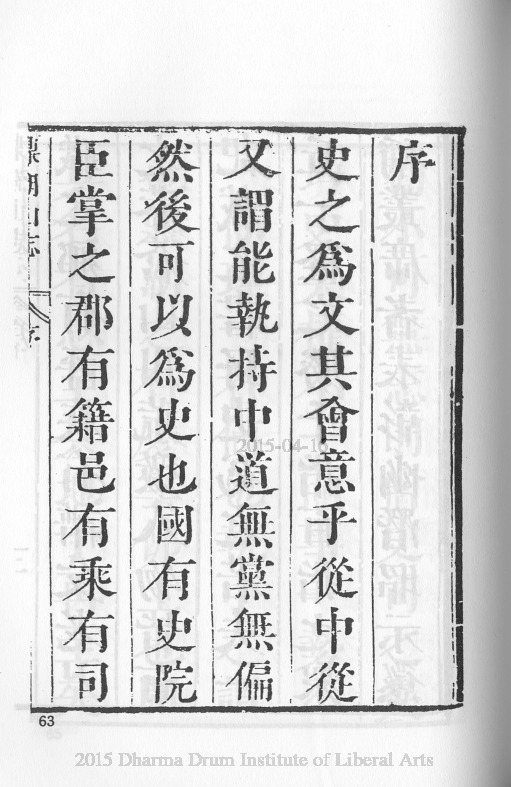 序
史之為文其會意乎從中從
又謂能執持中道無黨無偏
然後可以為史也國有史院
臣掌之郡有籍邑有乘有司
鼎湖山志
序
63
2015-04-10
2015 Dharma Drum Institute of Liberal Arts